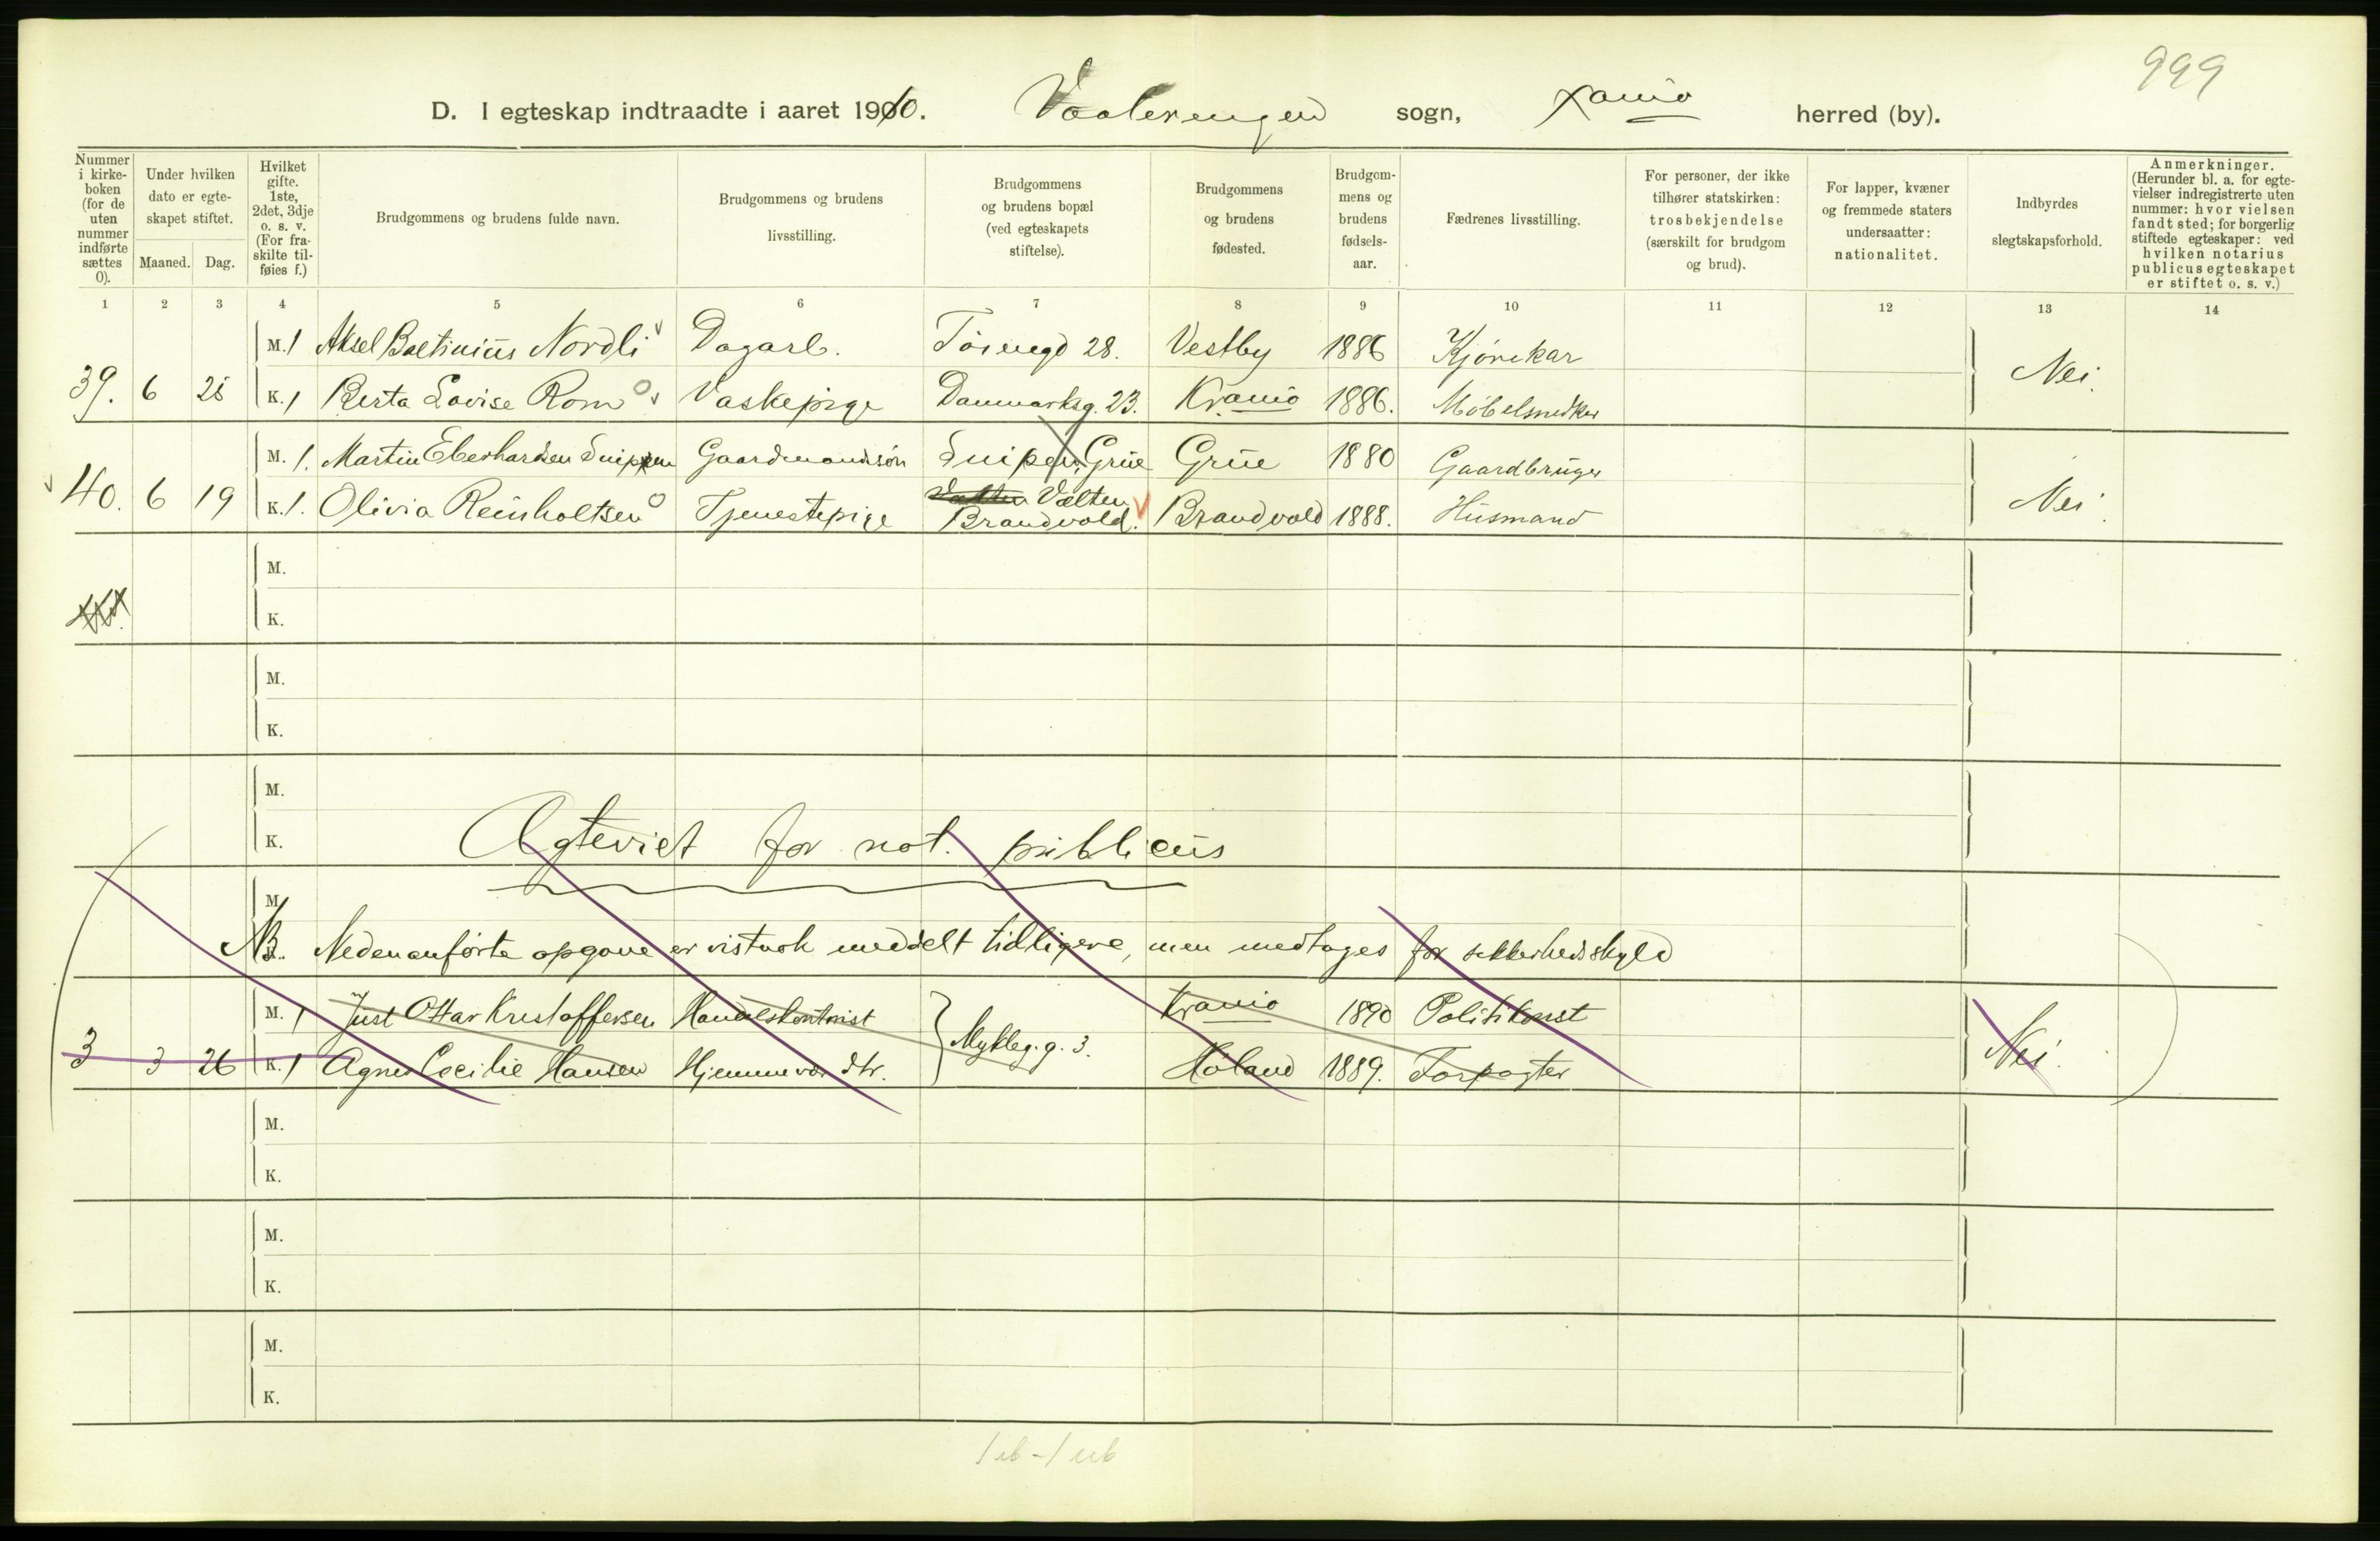 999
D. I egteskap indtraadte i aaret 1910. Vaalerengen sogn, Xania herred (by).
Nummer i kirke-boken (for de uten nummer indførte sættes 0).
Under hvilken dato er egte-skapet stiftet.
Maaned. Dag.
Hvilket gifte. 1ste, 2det, 3dje o. s. v. (For fra-skilte til-føies f.)
Brudgommens og brudens fulde navn.
Brudgommens og brudens livsstilling.
Brudgommens og brudens bopæl (ved egteskapets stiftelse).
Brudgommens og brudens fødested.
Brudgom-mens og brudens fødsels-aar.
Fædrenes livsstilling.
For personer, der ikke tilhører statskirken: trosbekjendelse (særskilt for brudgom og brud).
For lapper, kvæner og fremmede staters undersaatter: nationalitet.
Indbyrdes slegtskapsforhold.
Anmerkninger. (Herunder bl. a. for egte-vielser indregistrerte uten nummer: hvor vielsen fandt sted; for borgerlig stiftede egteskaper: ved hvilken notarius publicus egteskapet er stiftet o. s. v.)
1 2 3 4 5 6 7 8 9 10 11 12 13 14
M. 1 Aksel Nordli Dagarb. 28. Vestby 1886 Kjørekar
39. 6 25 K. 1 Berta Lovise Rom Vaskepige Danmarksg. 23. Kr.ania 1886. Møbelsnedker Nei.
M. 1. Martin Eberhardsen Snippen Gaardmandssøn Snipen, Grue Grue 1880 Gaardbruger
40. 6 19 K. 1. Olivia Reinholtsen Tjenestepige Vælten Brandvold. Brandvold 1888. Husmand Nei.
M.
K.
M.
K.
M.
K.
Ægteviet for not. publicus
M.
K.
NB. Nedenanførte opgave er vistnok meddelt tidligere, men medtages for sikkerhedsskyld
M. 1 Just Ottar Kristoffersen Handelskontorist Kr.ania 1890 Politikonst
3 3 26 K. 1 Agnes Cecilie Hansen Hjemmevær. dtr. Mykleg.g. 3. Høland 1889. Forpagter Nei.
M.
K.
M.
K.
M.
K.
1 ub - 1 ub